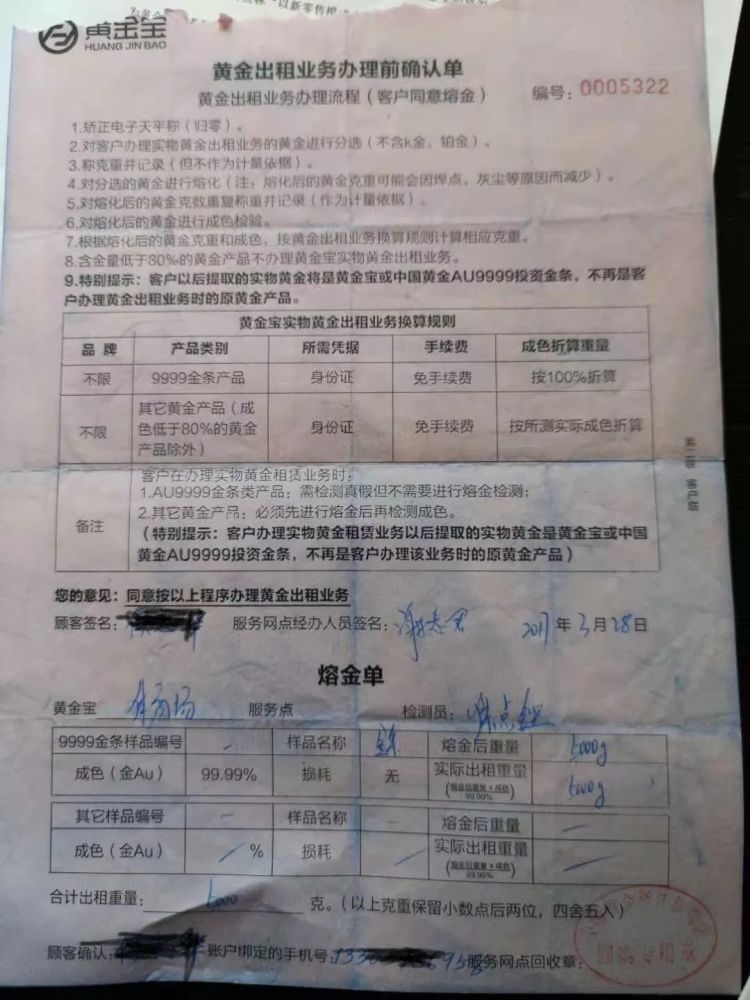 黄金宝
HUANG JIN BAO
黄金出租业务办理前确认单
黄金出租业务办理流程（客户同意熔金）
编号：0005322
1.矫正电子天平称（归零）。
2.对客户办理实物黄金出租业务的黄金进行分选（不含k金、铂金）。
3.称克重并记录（但不作为计量依据）。
4.对分选的黄金进行熔化（注：熔化后的黄金克重可能会因焊点、灰尘等原因而减少）。
5.对熔化后的黄金克数重复称重并记录（作为计量依据）。
6.对熔化后的黄金进行成色检验。
7.根据熔化后的黄金克重和成色，按黄金出租业务换算规则计算相应克重。
8.含金量低于80%的黄金产品不办理黄金宝实物黄金出租业务。
9.特别提示：客户以后提取的实物黄金将是黄金宝或中国黄金AU9999投资金条，不再是客
户办理黄金出租业务时的原黄金产品。
黄金宝实物黄金出租业务换算规则
品 牌 产品类别 所需凭据 手续费 成色折算重量
不限 9999金条产品 身份证 免手续费 按100%折算
不限 其它黄金产品（成色低于80%的黄金产品除外） 身份证 免手续费 按所测实际成色折算
备注
客户在办理实物黄金租赁业务时：
1.AU9999金条类产品：需检测真假但不需要进行熔金检测；
2.其它黄金产品：必须先进行熔金后再检测成色。
（特别提示：客户办理实物黄金租赁业务以后提取的实物黄金是黄金宝或中国
黄金AU9999投资金条，不再是客户办理该业务时的原黄金产品）
第二联 客户联
您的意见：同意按以上程序办理黄金出租业务
顾客签名： 服务网点经办人员签名： 2017年3月28日
熔金单
黄金宝 服务点 检测员：
9999金条样品编号 - 样品名称 熔金后重量 5000g
成色（金Au） 99.99% 损耗 无 实际出租重量 5000g
（熔金后重量×成色/99.99%）
其它样品编号 - 样品名称 - 熔金后重量 -
成色（金Au） / % 损耗 / 实际出租重量 /
（熔金后重量×成色/99.99%）
合计出租重量：5000 克。（以上克重保留小数点后两位，四舍五入）
顾客确认： 账户绑定的手机号： 服务网点回收章：